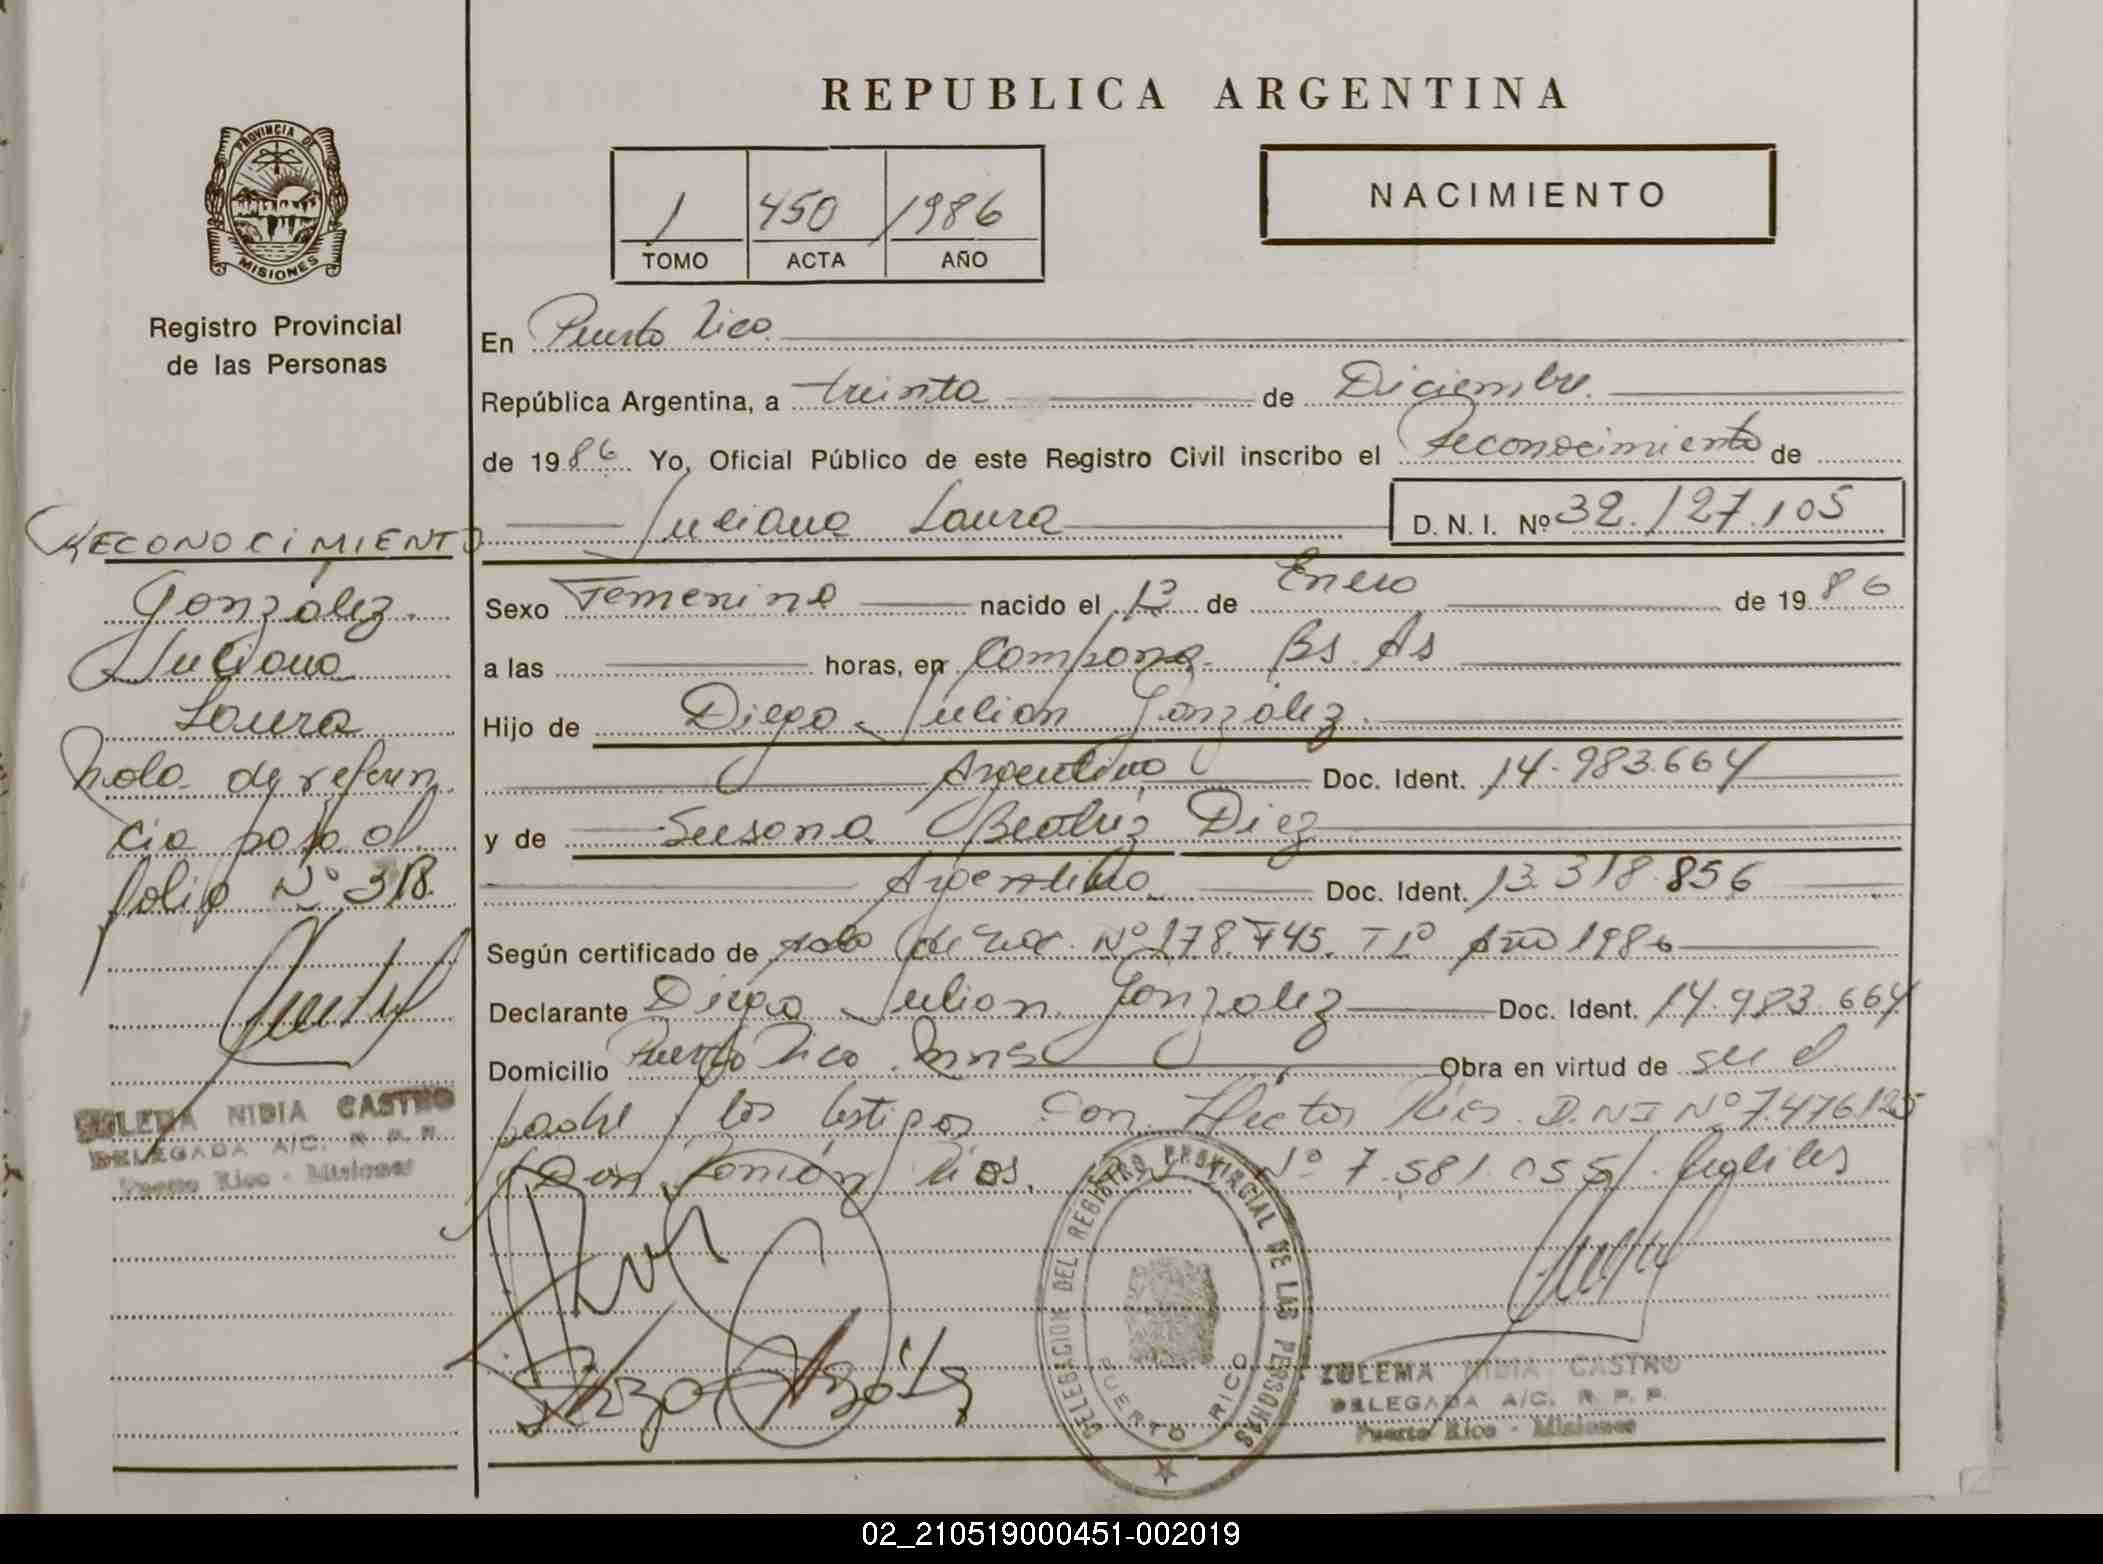 REPUBLICA ARGENTINA
PROVINCIA DE
MISIONES
Registro Provincial
de las Personas
1 450 1986
TOMO ACTA AÑO
NACIMIENTO
En Puerto Rico
República Argentina, a treinta de Diciembre.
de 1986. Yo, Oficial Público de este Registro Civil inscribo el Reconocimiento de
Luciana Laura D. N. I. Nº 32.127.105
RECONOCIMIENTO
González.
Luciana
Laura
Nota de referen
cia pasa al
folio Nº 318.
ZULEMA NIDIA CASTRO
DELEGADA A/C. R. P. P.
Puerto Rico - Misiones
Sexo Femenino nacido el de Enero de 1986
a las horas, en Campana Bs. As
Hijo de Diego Julian González.
Argentino Doc. Ident. 14.983.664
y de Susana Beatriz Diez
Argentina Doc. Ident. 13.318.856
Según certificado de Nº 178.745. Tº Año 1986
Declarante Diego Julian González Doc. Ident. 14.983.664
Domicilio Puerto Rico. Mnes Obra en virtud de su el
padre y los testigos Son Hector Rios. D.N.I Nº 7.476.125
y Don Ramón Rios. Nº 7.581.055/. hábiles
DELEGACION DEL REGISTRO PROVINCIAL DE LAS PERSONAS
PUERTO RICO
ZULEMA NIDIA CASTRO
DELEGADA A/C. R. P. P.
Puerto Rico - Misiones
02_210519000451-002019